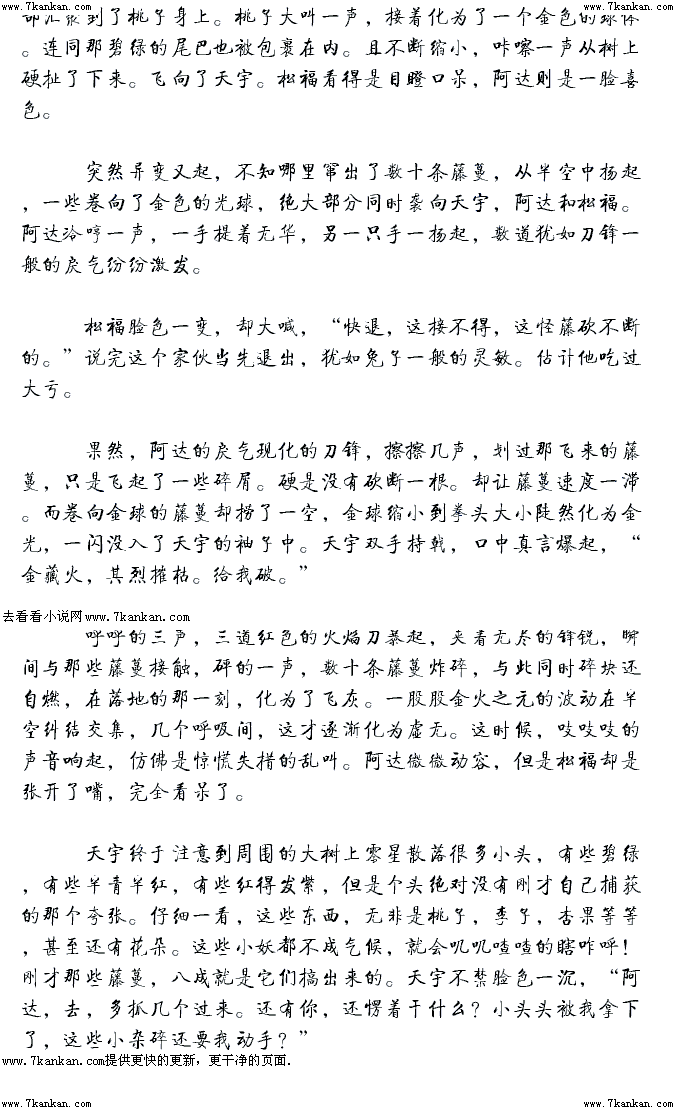 www.7kankan.com www.7kankan.com
到了桃子身上。桃子大叫一声，接着化为了一个金色的球体
。连同那碧绿的尾巴也被包裹在内。且不断缩小，咔嚓一声从树上
硬扯了下来。飞向了天宇。松福看得是目瞪口呆，阿达则是一脸喜
色。
突然异变又起，不知哪里窜出了数十条藤蔓，从半空中扬起
，一些卷向了金色的光球，绝大部分同时袭向天宇，阿达和松福。
阿达冷哼一声，一手提着无华，另一只手一扬起，数道犹如刀锋一
般的戾气纷纷激发。
松福脸色一变，却大喊，“快退，这接不得，这怪藤砍不断
的。”说完这个家伙当先退出，犹如兔子一般的灵敏。估计他吃过
大亏。
果然，阿达的戾气现化的刀锋，擦擦几声，划过那飞来的藤
蔓，只是飞起了一些碎屑。硬是没有砍断一根。却让藤蔓速度一滞
。而卷向金球的藤蔓却捞了一空，金球缩小到拳头大小陡然化为金
光，一闪没入了天宇的袖子中。天宇双手持戟，口中真言爆起，“
金藏火，其烈摧枯。给我破。”
去看看小说网www.7kankan.com
呼呼的三声，三道红色的火焰刀暴起，夹着无尽的锋锐，瞬
间与那些藤蔓接触，砰的一声，数十条藤蔓炸碎，与此同时碎块还
自燃，在落地的那一刻，化为了飞灰。一股股金火之元的波动在半
空纠结交集，几个呼吸间，这才逐渐化为虚无。这时候，吱吱吱的
声音响起，仿佛是惊慌失措的乱叫。阿达微微动容，但是松福却是
张开了嘴，完全看呆了。
天宇终于注意到周围的大树上零星散落很多小头，有些碧绿
，有些半青半红，有些红得发紫，但是个头绝对没有刚才自己捕获
的那个夸张。仔细一看，这些东西，无非是桃子，李子，杏果等等
，甚至还有花朵。这些小妖都不成气候，就会叽叽喳喳的瞎咋呼！
刚才那些藤蔓，八成就是它们搞出来的。天宇不禁脸色一沉，“阿
达，去，多抓几个过来。还有你，还愣着干什么？小头头被我拿下
了，这些小杂碎还要我动手？”
www.7kankan.com提供更快的更新，更干净的页面.
www.7kankan.com www.7kankan.com